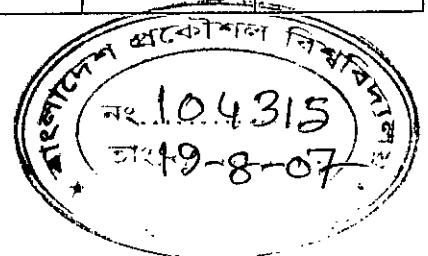 বাংলাদেশ প্রকৌশল বিশ্ববিদ্যালয়
নং 104315
তাং 19-8-07